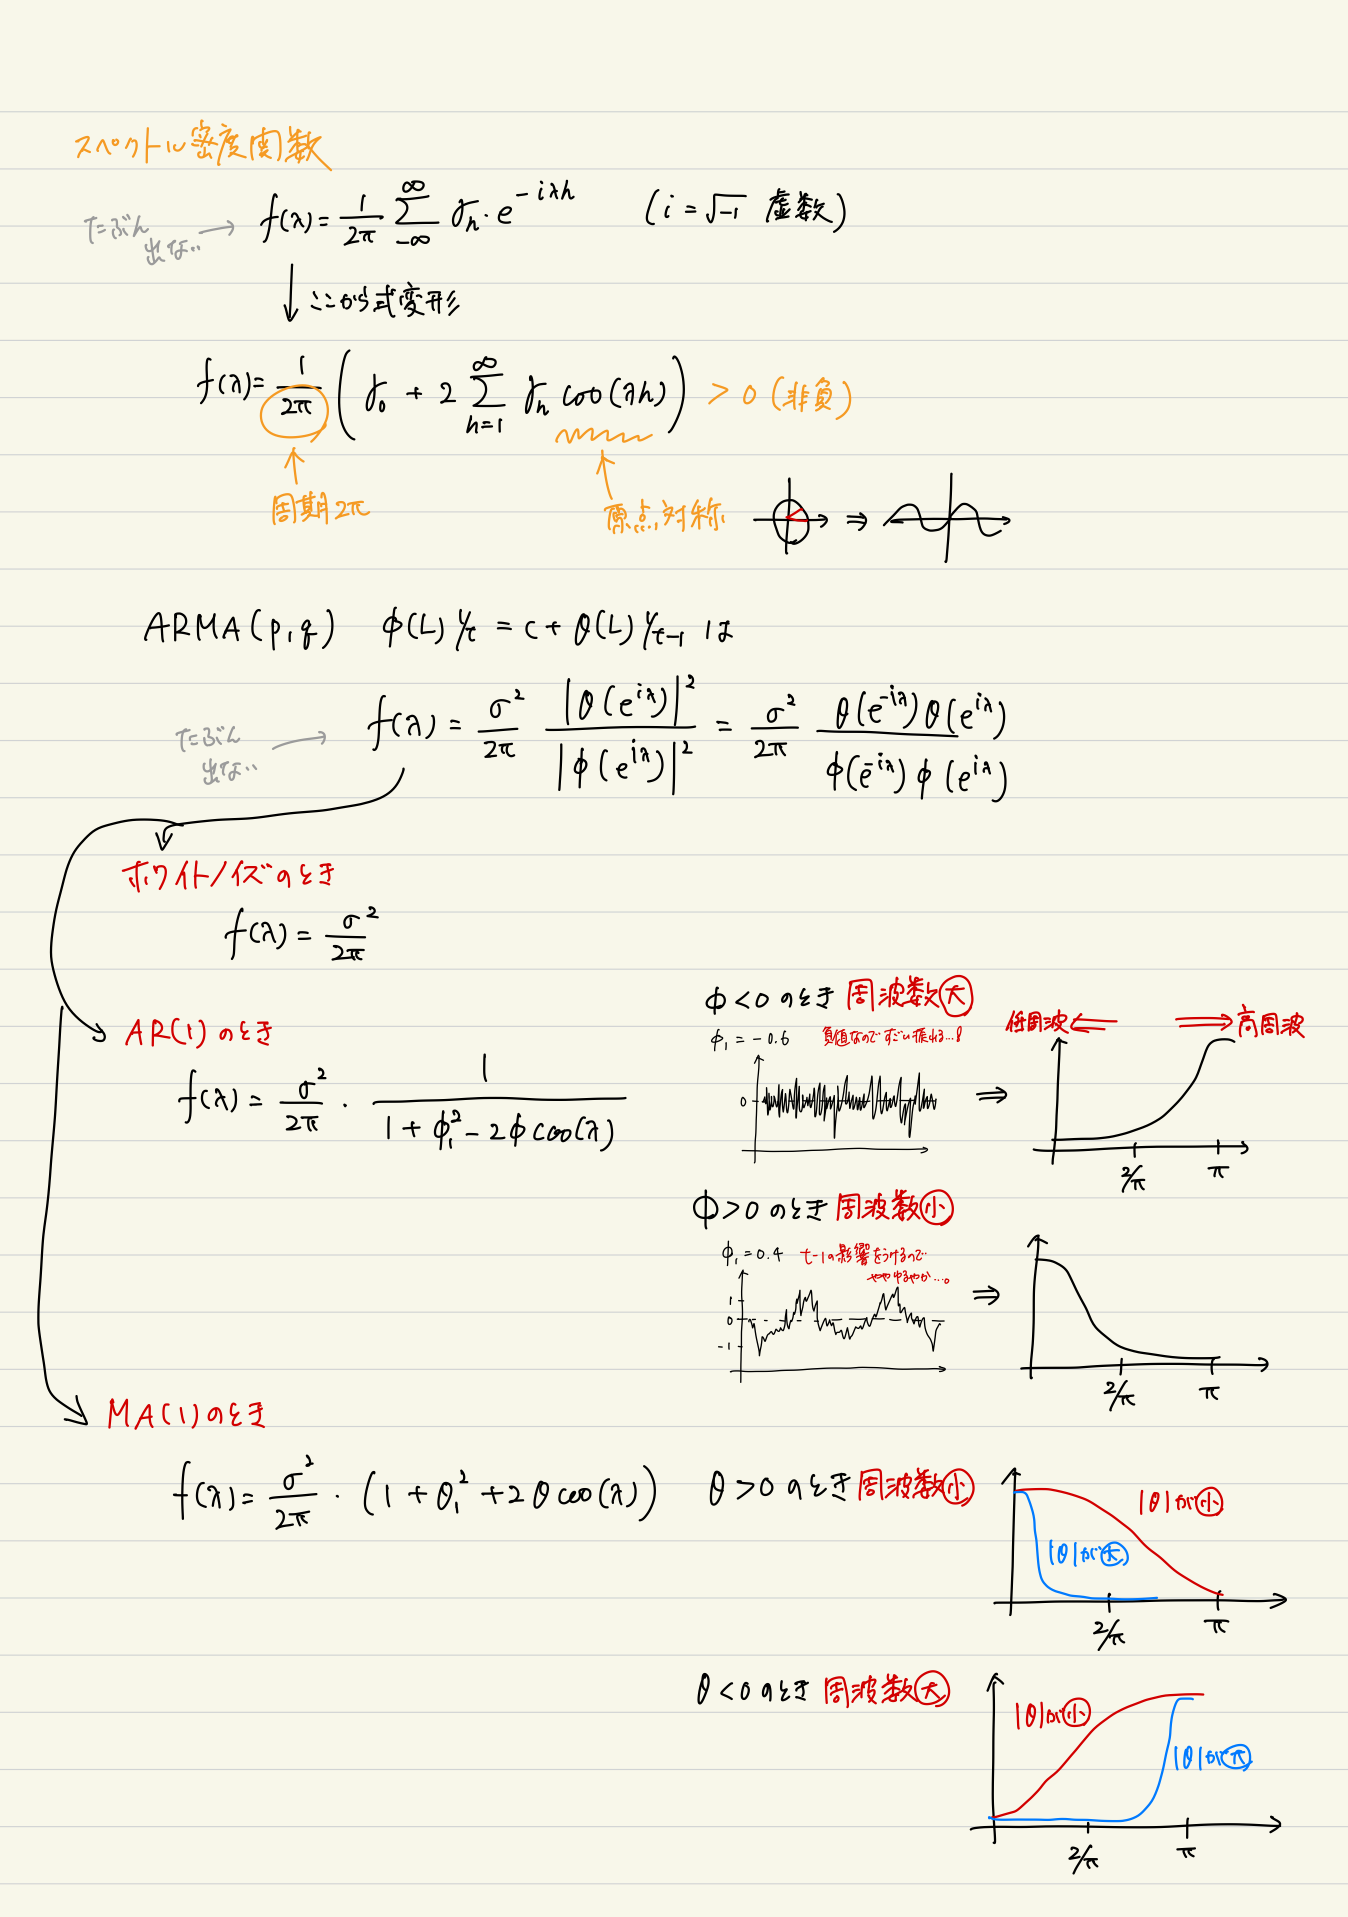 スペクトル密度関数
たぶん
出ない
f(λ)= 1/2π ∑_{-∞}^{∞} γ_h・e^{-iλh} (i=√-1 虚数)
ここから式変形
f(λ)= 1/2π (γ_0 + 2 ∑_{h=1}^{∞} γ_h cos(λh)) > 0 (非負)
周期2π
原点対称
ARMA(p,q) φ(L)Y_t = c+θ(L)Y_{t-1} は
f(λ) = σ²/2π |θ(e^{iλ})|²/|φ(e^{iλ})|² = σ²/2π θ(e^{-iλ})θ(e^{iλ})/φ(e^{-iλ})φ(e^{iλ})
たぶん
出ない
ホワイトノイズのとき
f(λ) = σ²/2π
AR(1)のとき
f(λ) = σ²/2π ・ 1/(1+φ_1²-2φcos(λ))
φ<0のとき 周波数大
φ_1 = -0.6 負値なのですごい振れる…!
0
低周波 高周波
2/π π
φ>0のとき 周波数小
φ_1 = 0.4 t-1の影響をうけるので
ややゆるやか…。
1
0
-1
2/π π
MA(1)のとき
f(λ) = σ²/2π ・ (1+θ_1²+2θcos(λ))
θ>0のとき 周波数小
|θ|が小
|θ|が大
2/π π
θ<0のとき 周波数大
|θ|が小
|θ|が大
2/π π